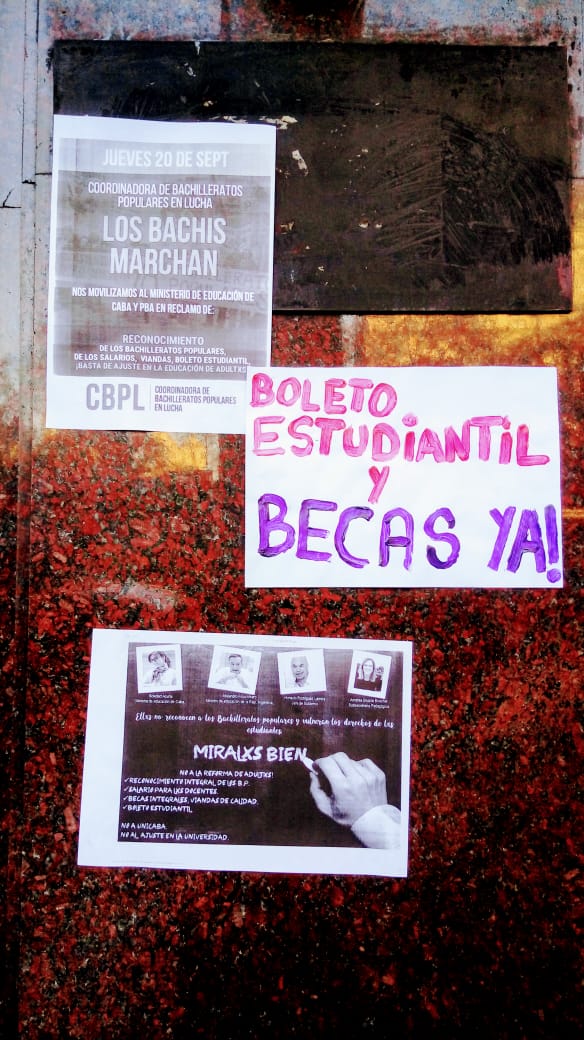 JUEVES 20 DE SEPT
COORDINADORA DE BACHILLERATOS
POPULARES EN LUCHA
LOS BACHIS
MARCHAN
NOS MOVILIZAMOS AL MINISTERIO DE EDUCACIÓN DE
CABA Y PBA EN RECLAMO DE:
RECONOCIMIENTO
DE LOS BACHILLERATOS POPULARES,
DE LOS SALARIOS, VIANDAS, BOLETO ESTUDIANTIL,
¡BASTA DE AJUSTE EN LA EDUCACIÓN DE ADULTXS
CBPL
COORDINADORA DE
BACHILLERATOS POPULARES
EN LUCHA
BOLETO
ESTUDIANTIL
Y
BECAS YA!
Soledad Acuña
Ministra de educación de Caba
Ministro de educación de la
Horacio Rodríguez Larreta
Jefe de Gobierno
Andrea
Ellxs no reconocen a los Bachilleratos populares y vulneran los derechos de las
estudiantes
MIRALXS BIEN
NO A LA REFORMA DE ADULTXS!
✓RECONOCIMIENTO INTEGRAL DE LOS B.P.
✓SALARIO PARA LXS DOCENTES.
✓BECAS INTEGRALES, VIANDAS DE CALIDAD.
✓BOLETO ESTUDIANTIL
NO A UNICABA.
NO AL AJUSTE EN LA UNIVERSIDAD.